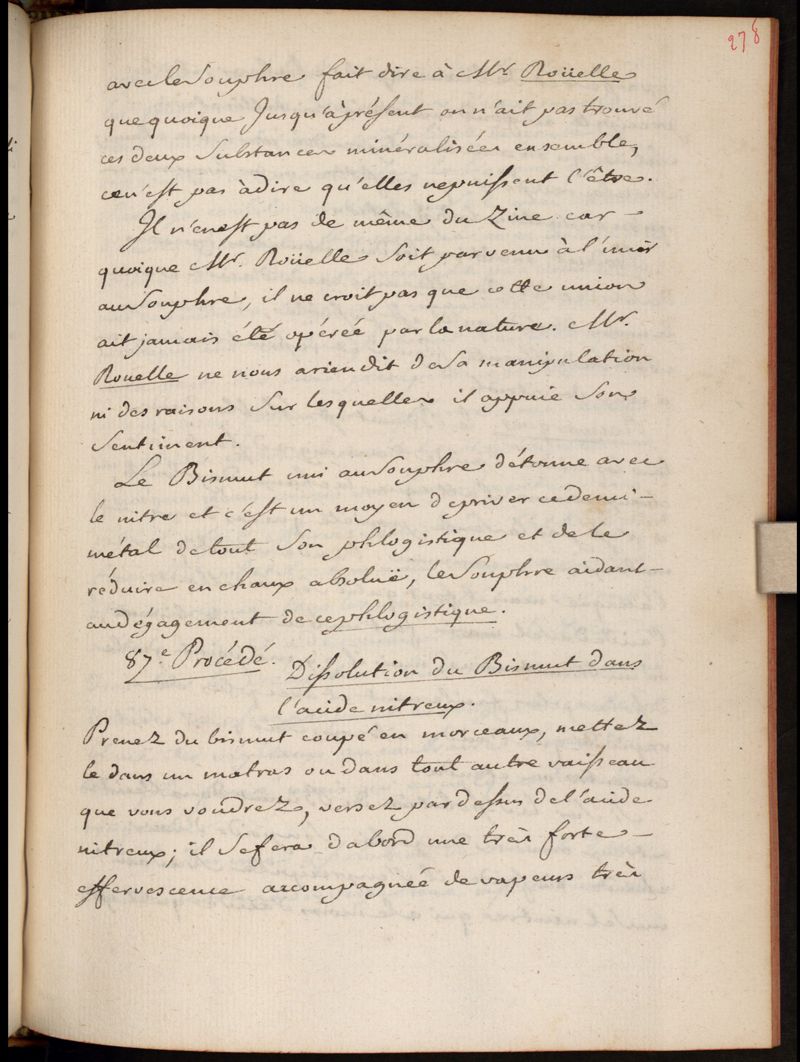 278
avec le Souphre fait dire à Mr. Roüelle
que quoique Jusqu'àprésent on n'ait pas trouvé
ces deux Substances minéralisées ensemble,
ce n'est pas àdire qu'elles nepuissent l'être.
Il n'enest pas de même du Zinc car -
quoique Mr. Roüelle Soit parvenu à l'unir
au Souphre, il ne croit pas que cette union
ait jamais été opérée par la nature. Mr.
Rouelle ne nous a rien dit de Sa manipulation
ni des raisons Sur lesquelles il appuie Son
Sentiment.
Le Bismut uni au Souphre détonne avec
le nitre et c'est un moyen de priver ce demi-
métal de tout Son phlogistique et de le
réduire en chaux absoluë, le Souphre aidant-
au dégagement de ce phlogistique.
87.e Procédé. Dissolution du Bismut dans
l'acide nitreux.
Prenez du bismut coupé en morceaux, mettez
le dans un matras ou dans tout autre vaisseau
que vous voudrez, versez par dessus de l'acide
nitreux; il Se fera dabord une très forte -
effervescence accompagneé de vapeurs très